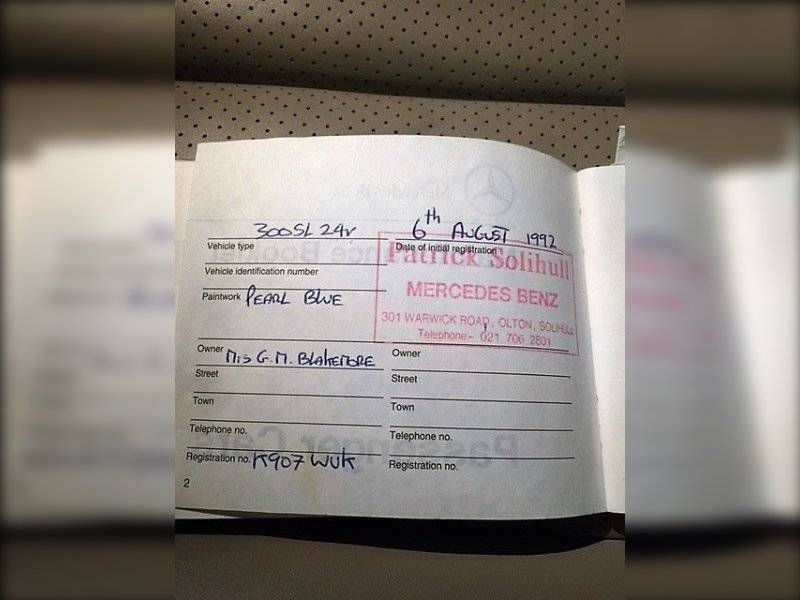 300SL 24v
6th AUGUST 1992
Vehicle type
Date of initial registration
Patrick Solihull
Vehicle identification number
MERCEDES BENZ
Paintwork PEARL BLUE
301 WARWICK ROAD, OLTON, SOLIHULL
Telephone:- 021 706 2801
Owner Mis G.M. BLAKEMORE
Owner
Street
Street
Town
Town
Telephone no.
Telephone no.
Registration no. K907 WUK
Registration no.
2